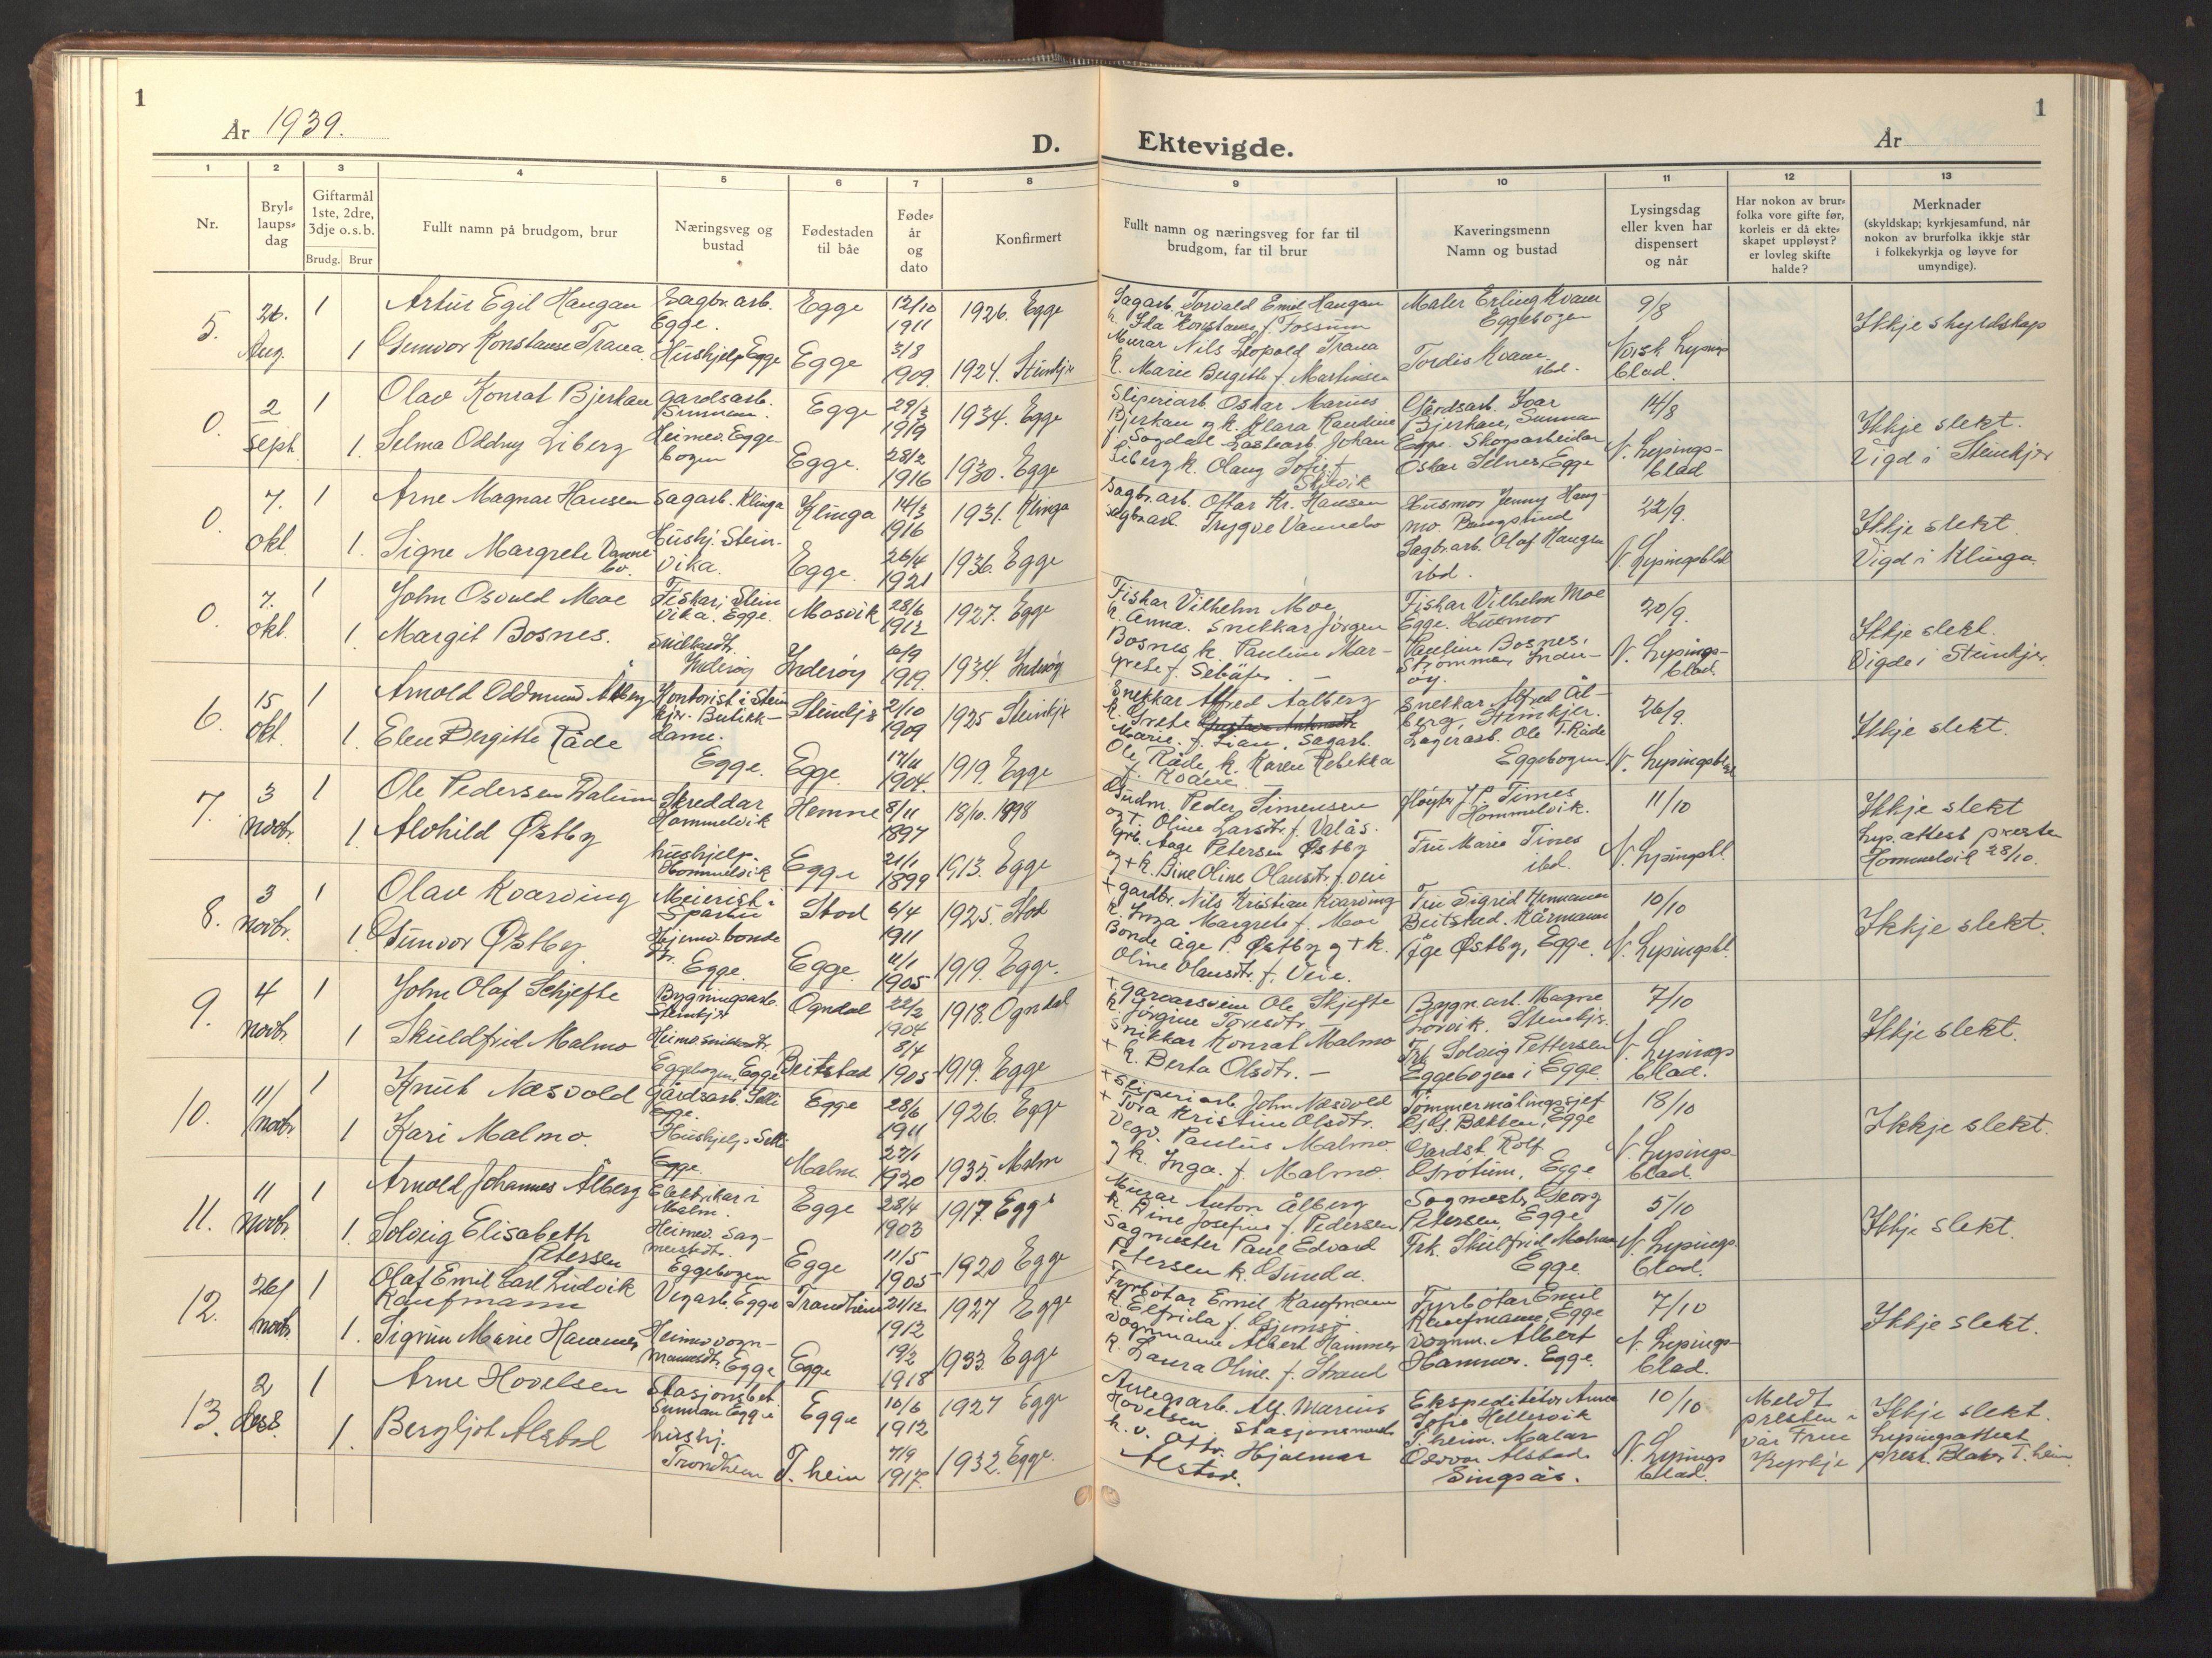 1
År 1939.
D.
1
2
3
4
5
6
7
8
Nr.
Bryl-
laups-
dag
Giftarmål
1ste, 2dre,
3dje o.s.b.
Brudg.
Brur
Fullt namn på brudgom, brur
Næringsveg og
bustad
Fødestaden
til båe
Føde-
år
og
dato
Konfirmert
5.
26.
Aug.
1
1
Artur Egil Haugan
Gunvor Konstanse Trana
Sagbr.arb.
Egge.
Hushjelp Egge
Egge
Egge
12/10
1911
3/8
1909.
1926. Egge
1924. Steinkjer
0.
2
Sept.
1
1.
Olav Konrat Bjerkan
Selma Oddny Liberg
gardsarb.
Sunnan.
Heimev. Egge-
bogen
Egge
Egge.
29/3
1919
28/2
1916
1934. Egge
1930. Egge
0.
7.
okt.
1
1.
Arne Magnar Hansen
Signe Margrete Vanne-
bo.
Sagarb. Klinga
Hushj. Stein-
vika.
Klinga
Egge.
14/3
1916
26/4
1921
1931. Klinga
1936. Egge
0.
7.
okt.
1
1.
John Osvald Moe
Margit Bosnes.
Fiskar i Stein
vika. Egge.
Snikkardtr.
Inderøy
Mosvik
Inderøy
28/6
1912
6/9
1919.
1927. Egge
1934. Inderøy
6.
15
okt.
1
1.
Arnold Oddmund Ålberg
Elen Bergitte Råde
Kontorist i Stein
kjer. Butikk-
dame.
Egge.
Steinkjer
Egge.
2/10
1909
17/11
1904.
1925 Steinkjer
1919. Egge
7.
3
novbr.
1
1.
Ole Pedersen Valum
Alvhild Østby
Skreddar
Hommelvik
hushjelp.
Hommelvik
Hemne
Egge
8/11
1897
21/1
1899
18/10. 1898
1913. Egge
8.
3
novbr.
1
1.
Olav Kvarving
Gunvor Østby
Meierist i
Sparbu
Hjemv. bonde
dtr.
Egge.
Stod
Egge.
6/4
1911
11/1
1905
1925. Stod
1919. Egge.
9.
4
novbr.
1
1
John Olaf Schjefte
Skuldfrid Malmo
Bygningsarb.
Steinkjer
Heimev. snikkardtr.
Eggebogen, Egge
Ogndal
Beitstad
22/2
1904
8/4
1905
1918. Ogndal
1919. Egge
10.
11/
novbr.
1
1
Knut Næsvold
Kari Malmo.
Gårdsarb. Selli
Egge.
Hushjelp. Selli
Egge.
Egge
Malm.
28/6
1911
27/1
1920
1926. Egge
1935. Malm
11.
11
novbr.
1
1.
Arnold Johannes Ålberg
Solveig Elisabeth
Petersen
Elektrikar i
Malm.
Heimev. Sag-
mesterdtr.
Eggebogen
Egge
Egge
28/4
1903
11/5
1905
1917. Egge
1920 Egge
12.
26/
novbr.
1
1.
Olaf Emil Carl Ludvik
Kaufmann
Sigrun Marie Hammer
Vegarb. Egge
Heimev. vogn-
mannsdtr. Egge
Trondheim
Egge
21/12
1912
19/2
1918
1927 Egge
1933. Egge
13.
2
des.
1
1.
Arne Hovelsen
Bergljot Alstad
Stasjonsbet.
Sunnan Egge
hushj.
Trondheim
Egge
T. heim
10/6
1912
7/9
1917.
1927 Egge
1932. Egge.
1
Ektevigde.
År
9
10
11
12
13
Fullt namn og næringsveg for far til
brudgom, far til brur
Kaveringsmenn
Namn og bustad
Lysingsdag
eller kven har
dispensert
og når
Har nokon av brur-
folka vore gifte før,
korleis er då ekte-
skapet uppløyst?
er lovleg skifte
halde?
Merknader
(skyldskap; kyrkjesamfund, når
nokon av brurfolka ikkje står
i folkekyrkja og løyve for
umyndige).
Sagarb. Torvald Emil Haugan
k. Ida Konstanse f. Fossum
Murar Nils Leopold Trana
k. Marie Bergitte f. Martinsen
Maler Erling Kvam
Eggebogen
Tordis Kvam
ibd.
9/8
Norsk Lysings
blad.
Ikkje skyldskap
Sliperiarb. Oskar Marius
Bjerkan og k. Klara Randine
f. Sogdal Lastearb. Johan
Liberg k. Olaug Sofie f.
Gårdsarb. Ivar
Bjerkan, Sunnan
Egge. Skogsarbeidar
Oskar Selnes, Egge
14/8
N. Lysings-
blad
Ikkje slekt.
Vigd i Steinkjer
Sagbr.arb. Ottar Kr. Hansen
Sagbr.arb. Trygve Vannebo
Husmor Jenny Haug-
mo. Bangsund
Sagbr.arb. Olaf Haugan
ibd.
22/9.
N. Lysingsblad
Ikkje slekt.
Vigd i Klinga.
Fiskar Vilhelm Moe
k. Anna. Snekkar Jørgen
Bosnes k. Pauline Mar-
grete f. —
Fiskar Vilhelm Moe
Egge. Husmor
Pauline Bosnes,
Strømmen, Inder-
øy.
20/9.
N. Lysings-
blad.
Ikkje slekt.
Vigde i Steinkjer.
Snekkar Alfred Aalberg
k. Grete
Marie. f. Lian. Sagarb.
Ole Råde, k. Karen Rebekka
f. Kvam.
Snekkar Alfred Ål-
berg, Steinkjer.
Lagerarb. Ole T. Råde
Eggebogen
26/9.
N. Lysingsblad
Ikkje slekt.
Gudm. Peder Simensen
og †. Oline Larsdtr. f. Valås.
Grb. Aage Petersen Østby
og † k. Bine Oline Olausdtr. f. Veie
J.P. Times
Hommelvik.
Fru Marie Times
ibd.
11/10
N. Lysingsbl.
Ikkje slekt
Lys. attest preste
Hommelvik 28/10.
† gardbr. Nils Kristian Kvarving
k. Inga Margrete f. Moe
Bonde Åge P. Østby og † k.
Oline Olausdtr. f. Veie.
Fru Sigrid Hermann
Beitstad. Kårmann
Åge Østby, Egge.
10/10
N. Lysingsbl.
Ikkje slekt.
† garvarsvein Ole Skjefte
k. Jørgine Toresdtr. —
Snikkar Konrat Malmo
† k. Berta Olsdtr. —
Bygn.arb. Magne
Steinkjer.
Frk. Solveig Pettersen
Eggebogen i Egge.
7/10
N. Lysings
blad.
Ikkje slekt.
† Sliperiarb. John Næsvold
† Tora Kristine Olsdtr.
Vegv. Paulus Malmo.
og k. Inga. f. Malmo.
Tømmermålingssjef
Bakken, Egge
Gardst. Rolf
Grøtum, Egge.
18/10
N. Lysings-
blad.
Ikkje slekt.
Murar Anton Ålberg
k. Bine Josefine f. Pedersen
Sagmester Paul Edvard
Petersen k. Gunda.
Sagmestr. Georg
Petersen, Egge
Frk. Skulfrid Malmo
Egge.
5/10
N. Lysings-
blad.
Ikkje slekt.
Fyrbøtar Emil Kaufmann
k. Elfrida f. Gjemsø
Vognmann Albert Hammer
k. Laura Oline. f. Strand
Fyrbøtar Emil
Kaufmann, Egge
Vognm. Albert
Hammer. Egge.
7/10
N. Lysings-
blad.
Ikkje slekt.
Anlegsarb. Alf. Marius
Hovelsen Stasjonsmester
k. v. Otto. Hjalmar
Alstad.
Ekspeditør Anna
Sofie Hellesvik
T.heim. Malar
Oddvar Alstad
Singsås.
10/10
N. Lysings
blad.
Meldt
presten i
Vår Frue
Kyrkje
Ikkje slekt.
Lysingsattest
prest. T.heim.